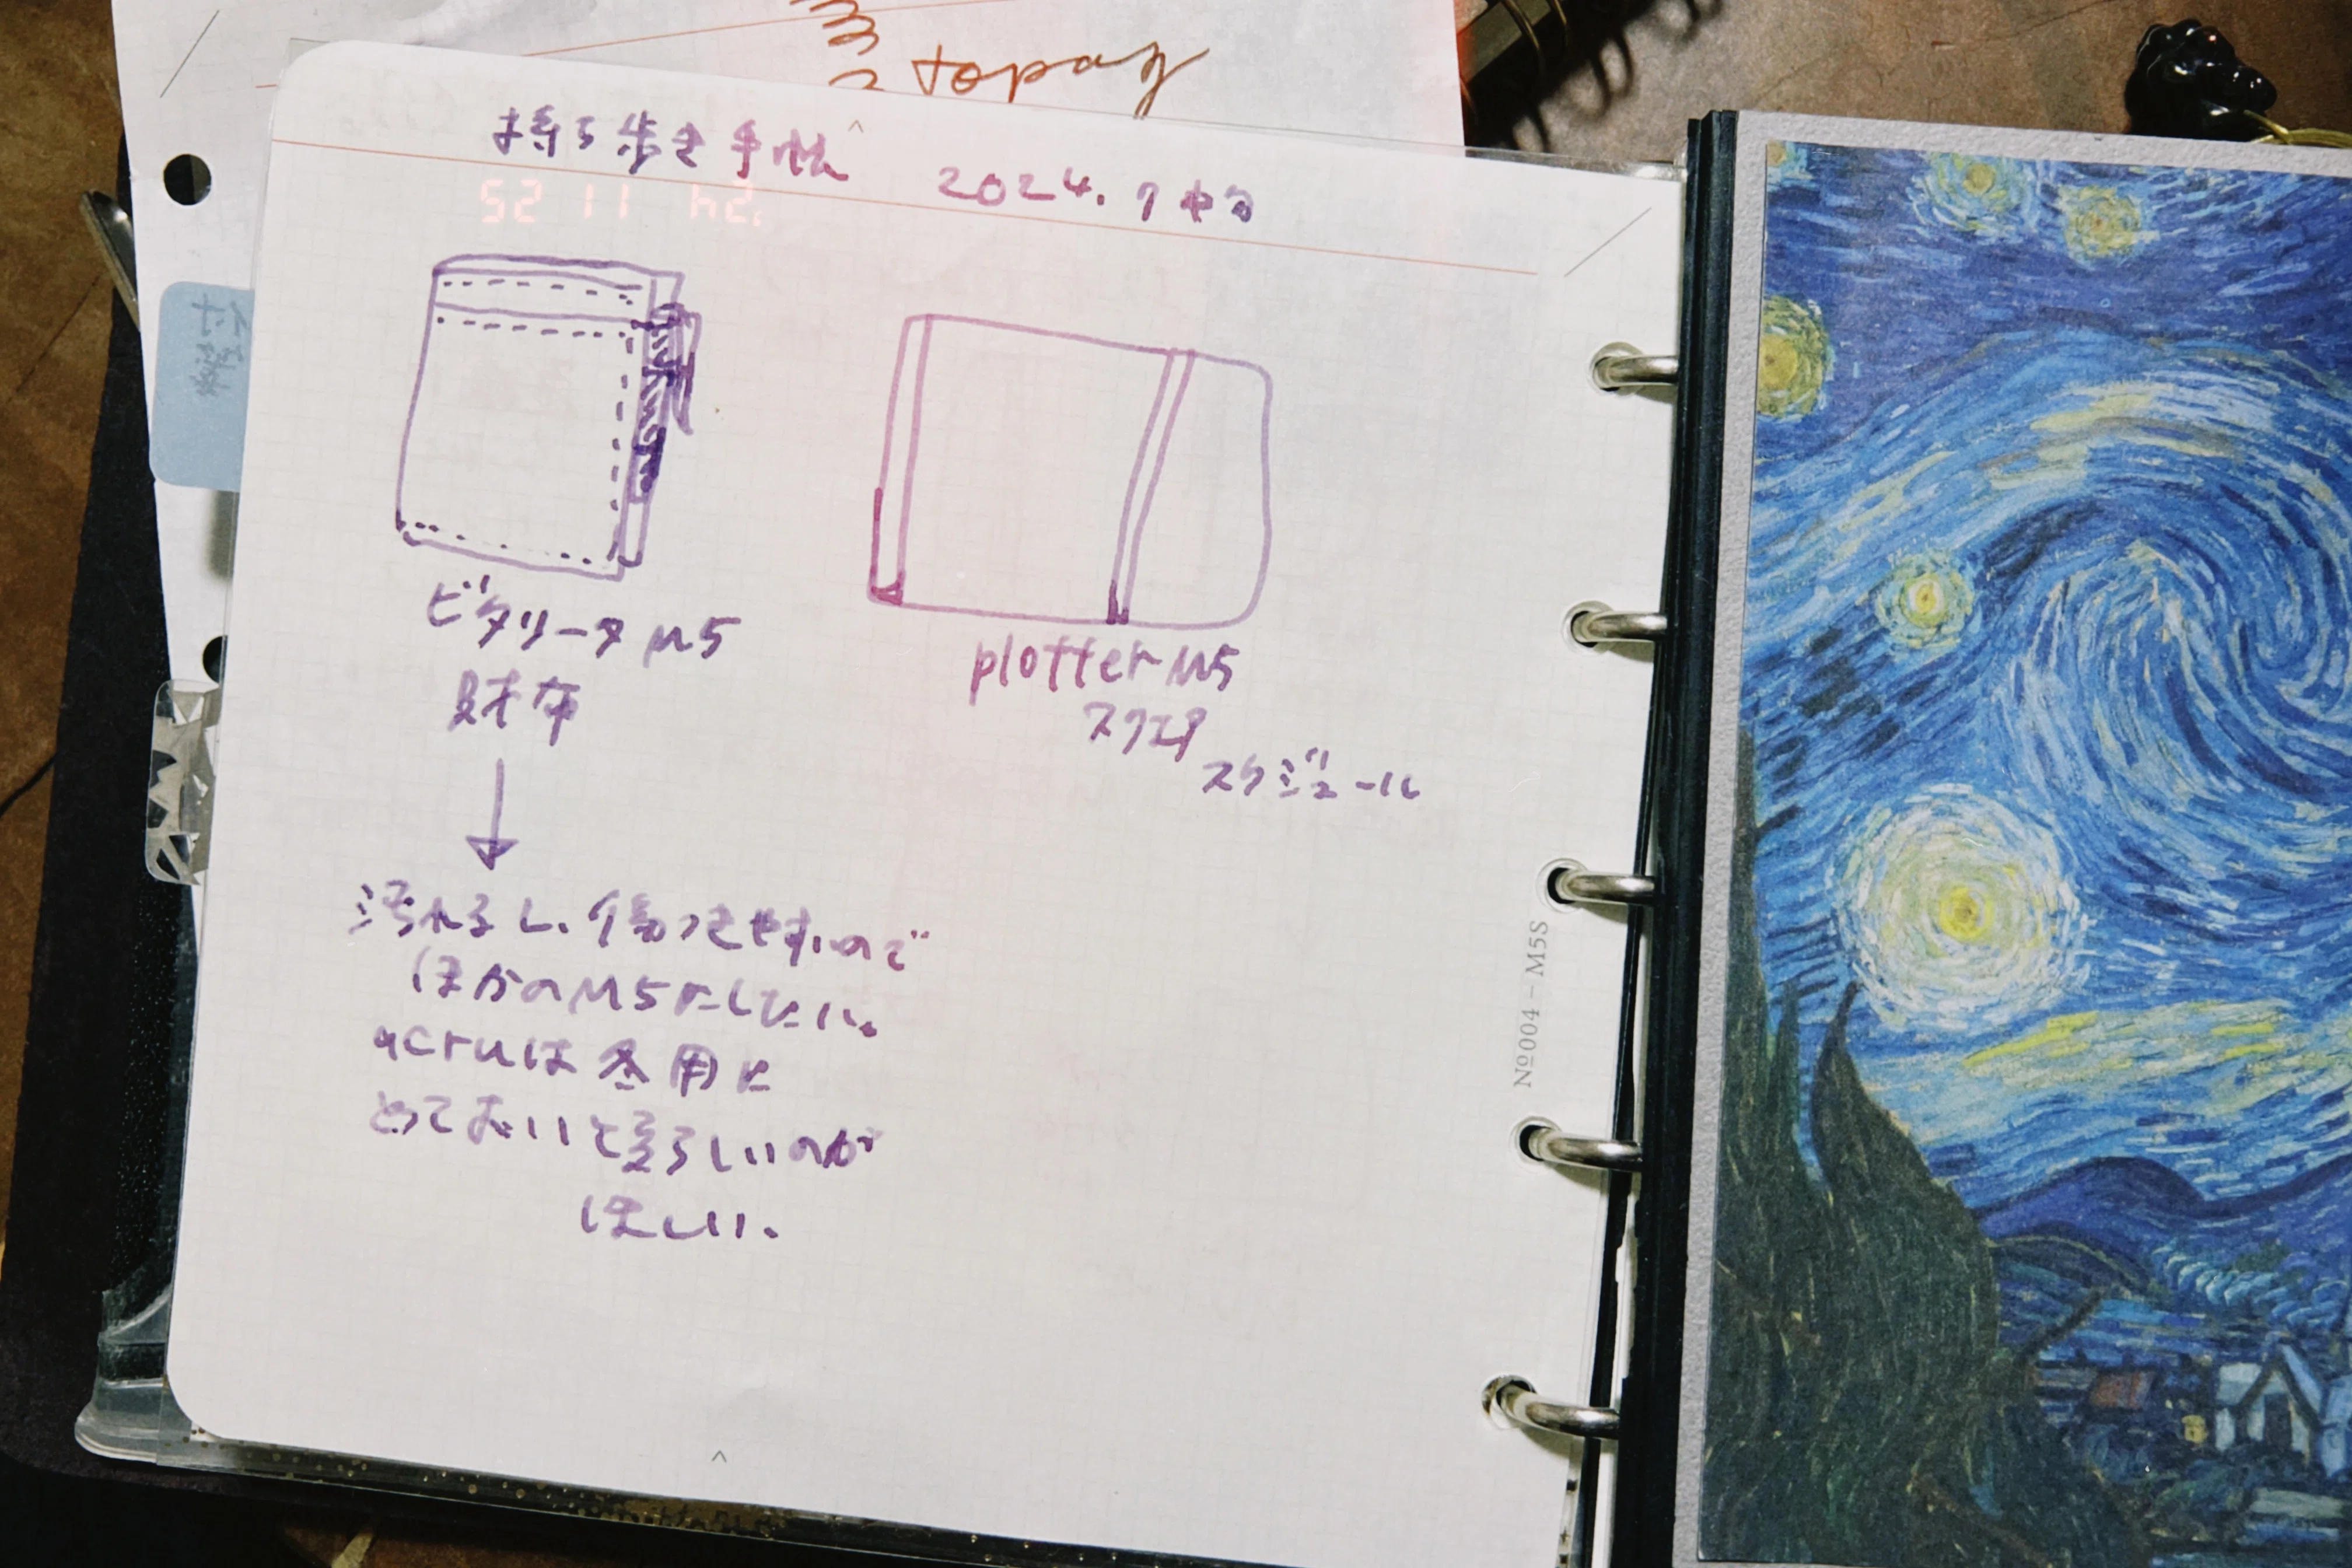 topaz
持ち歩き手帳 2024.7中旬
'24 11 25
付箋
ビタリータM5
財布
plotter M5
スクエア
スケジュール
汚れるし、傷つきやすいので
ほかのM5にしたい。
acruは冬用に
とっておいて夏らしいのが
ほしい。
Nº004-M5S